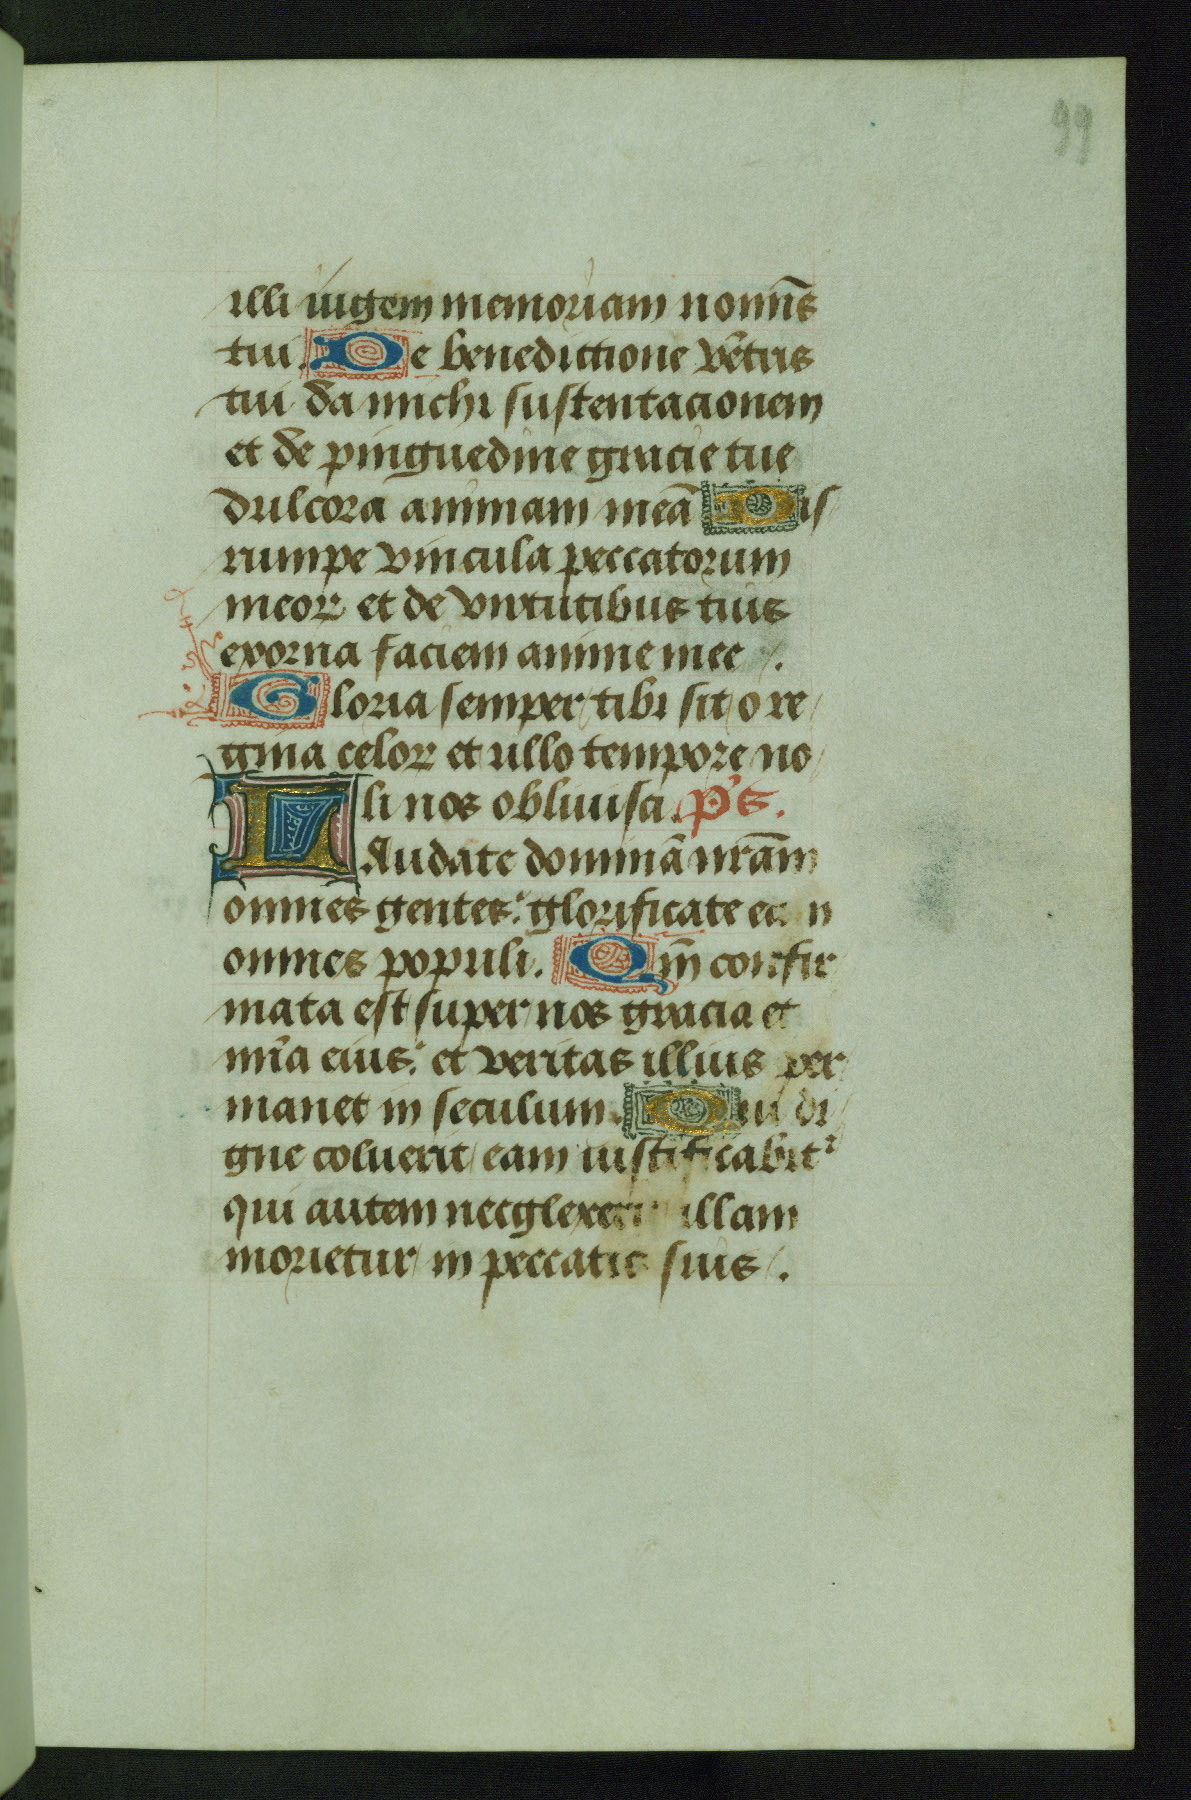 99
illi iugem memoriam nomĩs
tui. De benedictione vẽtris
tui da michi sustentacionem
et de pinguedine gracie tue
dulcora animam meã Dis
rumpe vincula peccatorum
meoꝝ et de virtutibus tuis
exorna faciem anime mee.
Gloria semper tibi sit o re
gina celoꝝ et ullo tempore no
li nos obliuisci. p̃s.
LAudate dominã nr̃am
omnes gentes: glorificate eam
omnes populi. Qm̃ confir
mata est super nos gracia et
mĩa eius: et veritas illius per
manet in seculum. Qui di
gne coluerit eam iustificabit᷑
qui autem necglexerit illam
morietur in peccatis suis.